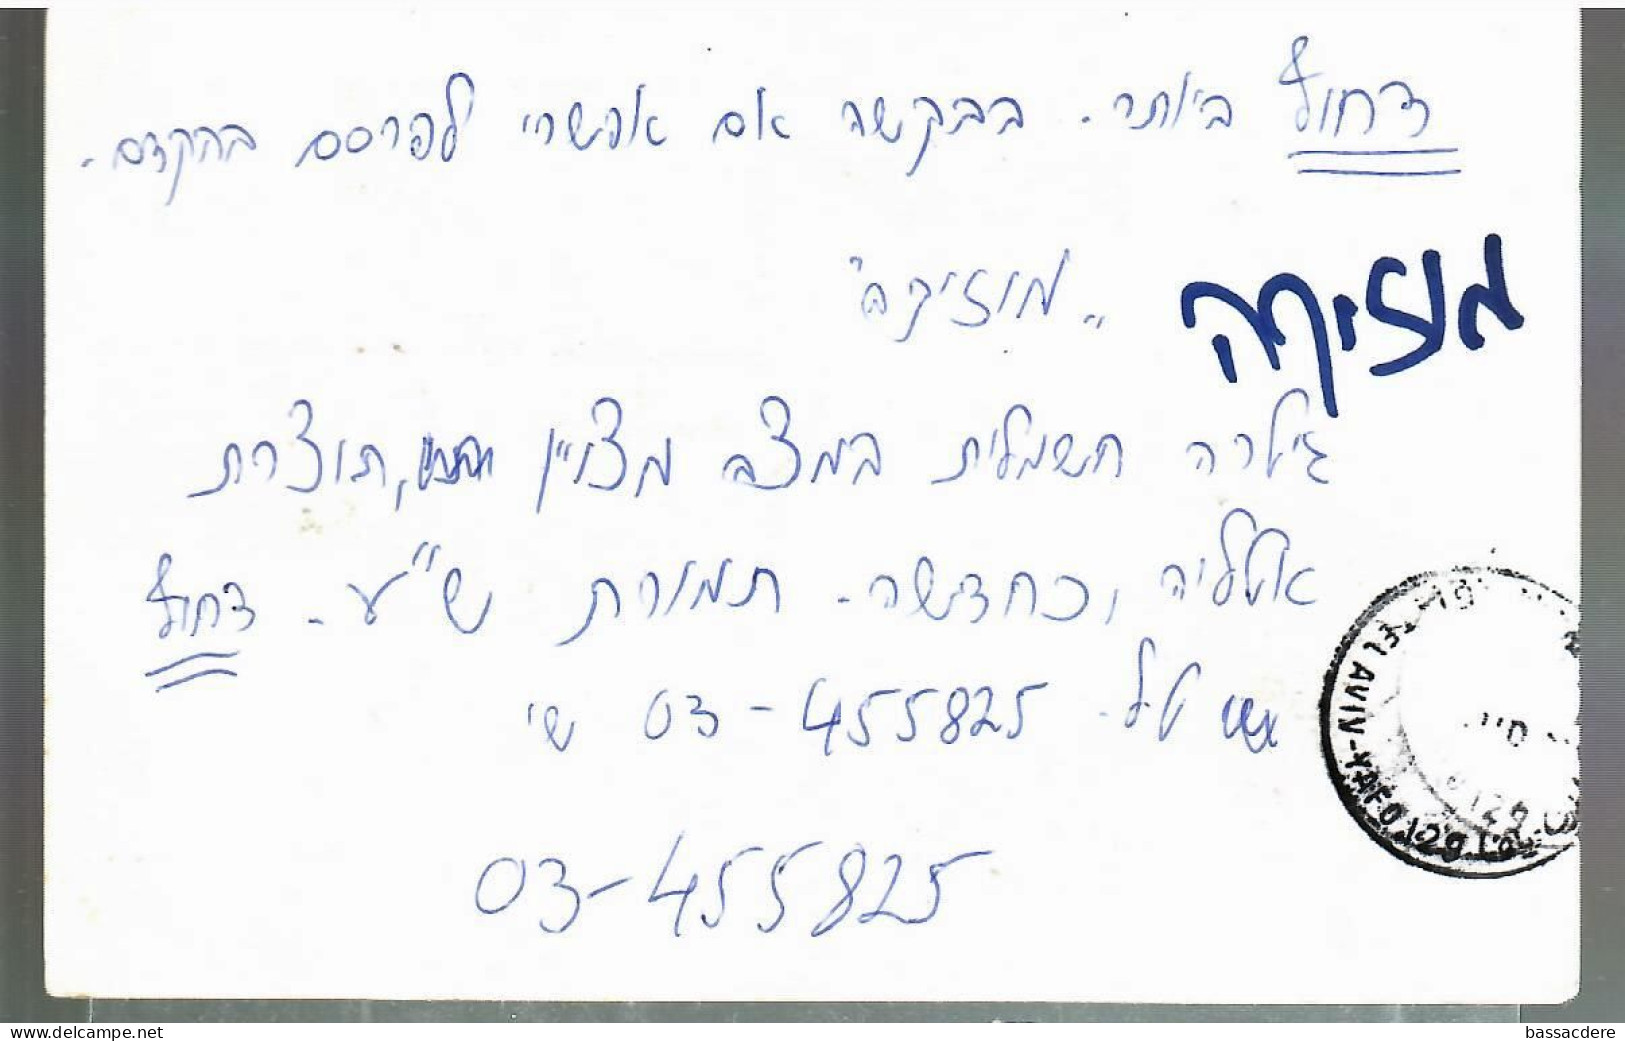 דחוף ביותר. בבקשה אם אפשרי לפרסם בהקדם.
מוזיקה
"מוזיקה"
גיטרה חשמלית במצב מצויין, תוצרת
אטליה, כחדשה. תמורת ש"ע. דחוף
טל. 03-455825 שי
03-455825
TEL AVIV-YAFO
bassacdere
www.delcampe.net